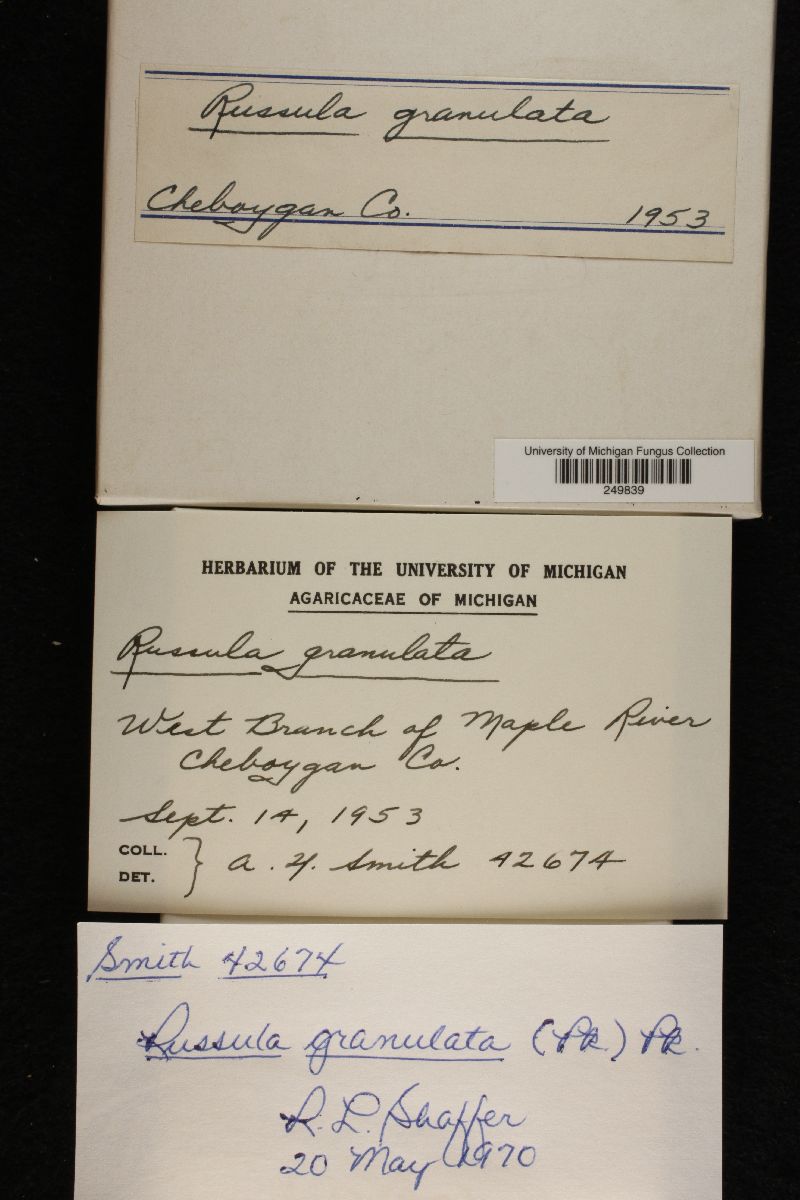 Russula granulata
Cheboygan Co. 1953
University of Michigan Fungus Collection
249839
HERBARIUM OF THE UNIVERSITY OF MICHIGAN
AGARICACEAE OF MICHIGAN
Russula granulata
West Branch of Maple River
Cheboygan Co.
Sept. 14, 1953
COLL.
DET. } A. H. Smith 42674
Smith 42674
Russula granulata (Pk.) Pk.
R. L. Shaffer
20 May 1970